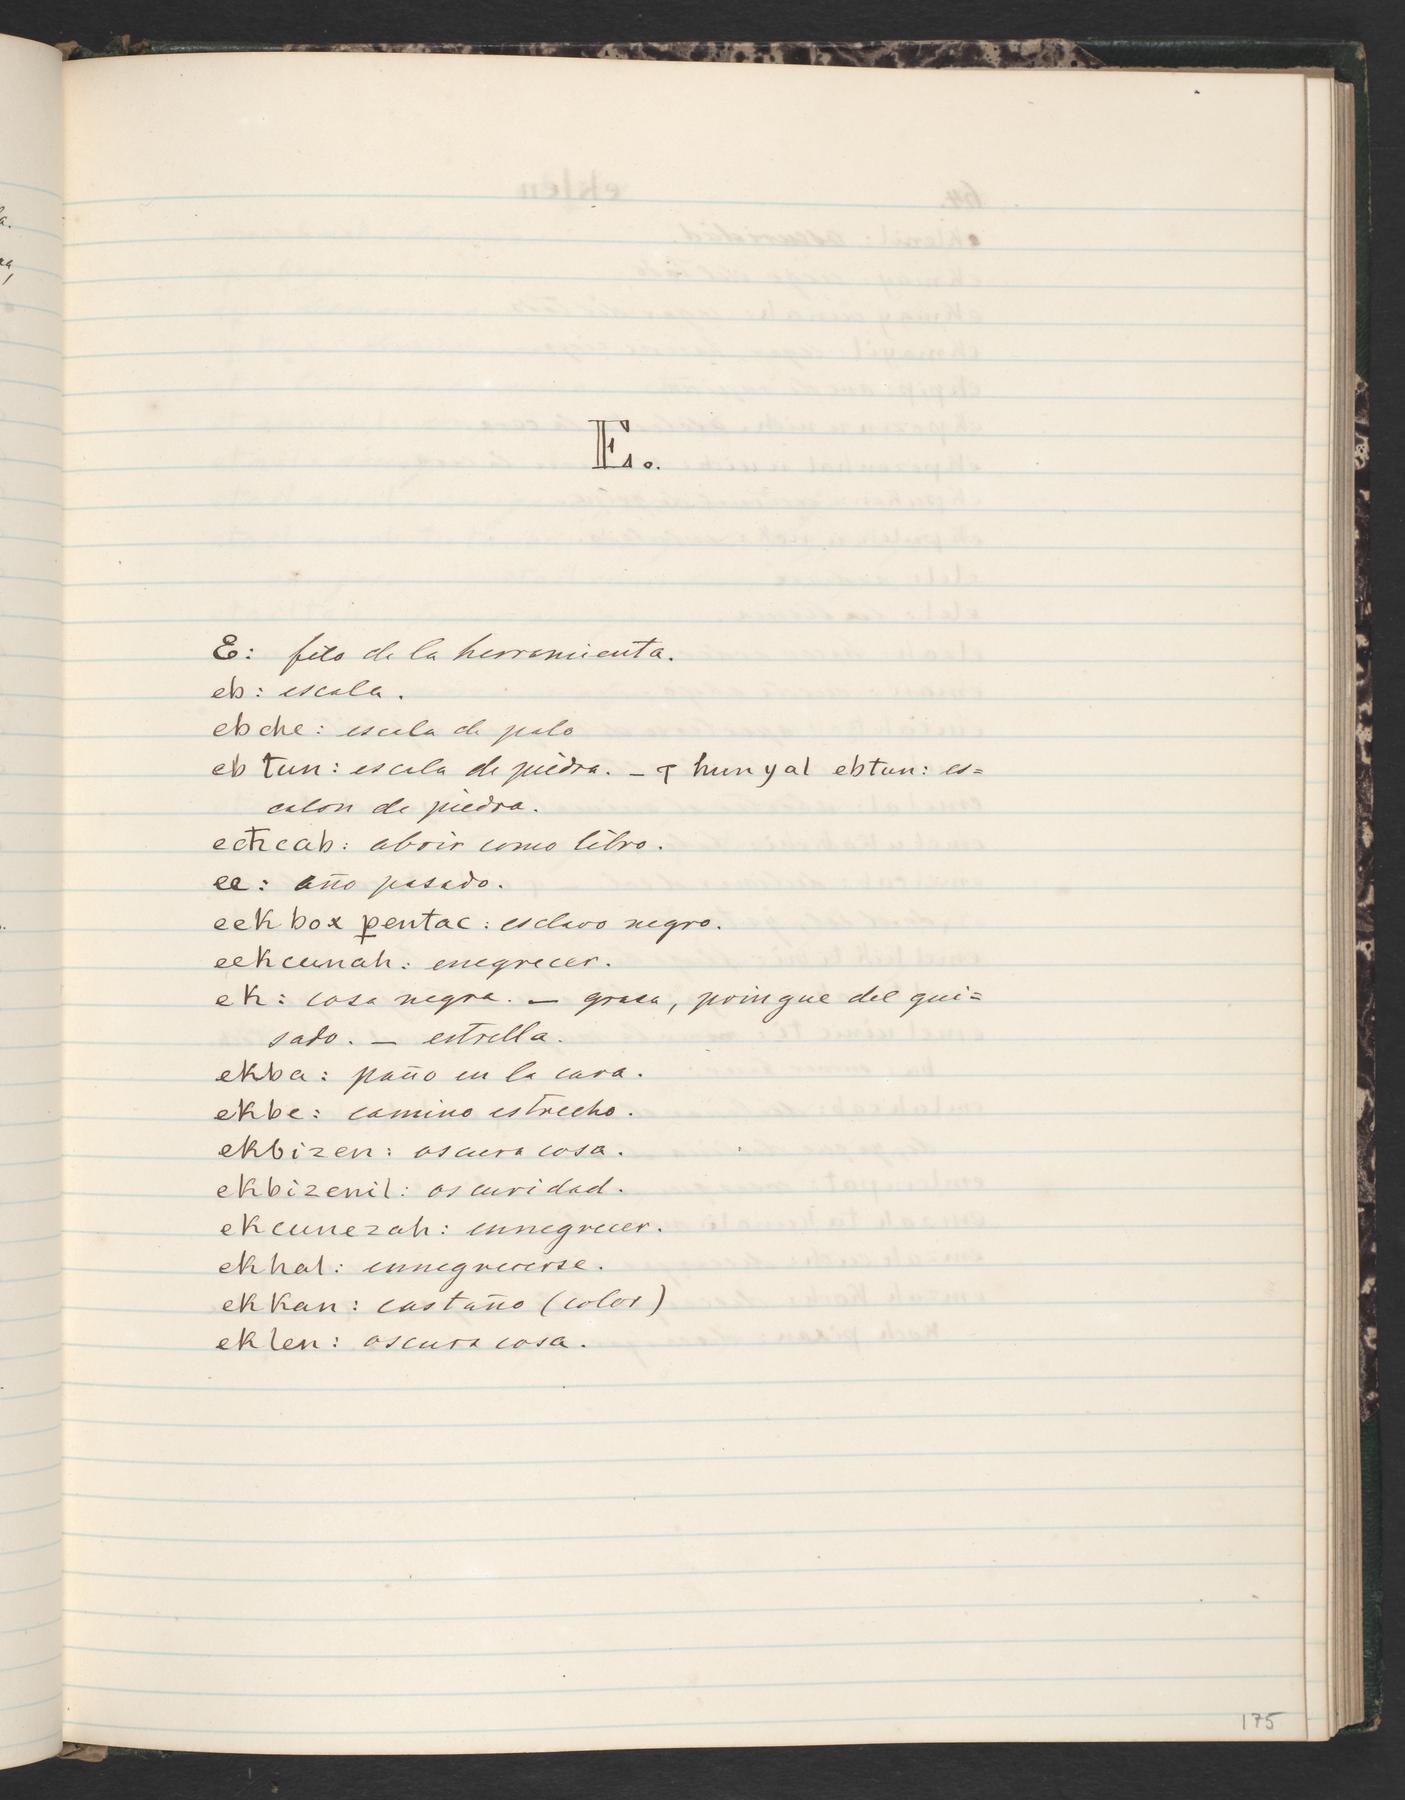 E.
E: filo de la herramienta.
eb: escala.
ebche: escala de palo
eb tun: escala de piedra. – hunyal ebtun: es=
calon de piedra.
echcab: abrir como libro.
ee: año pasado.
eek box pentac: esclavo negro.
eekcunah: enegrecer.
ek: cosa negra. – grasa, pringue del gui=
sado. – estrella.
ekba: paño en la cara.
ekbe: camino estrecho.
ekbizen: oscura cosa.
ekbizenil: oscuridad.
ekcunezah: ennegrecer.
ekhal: ennegrecerse.
ekkan: castaño (color)
eklen: oscura cosa.
175